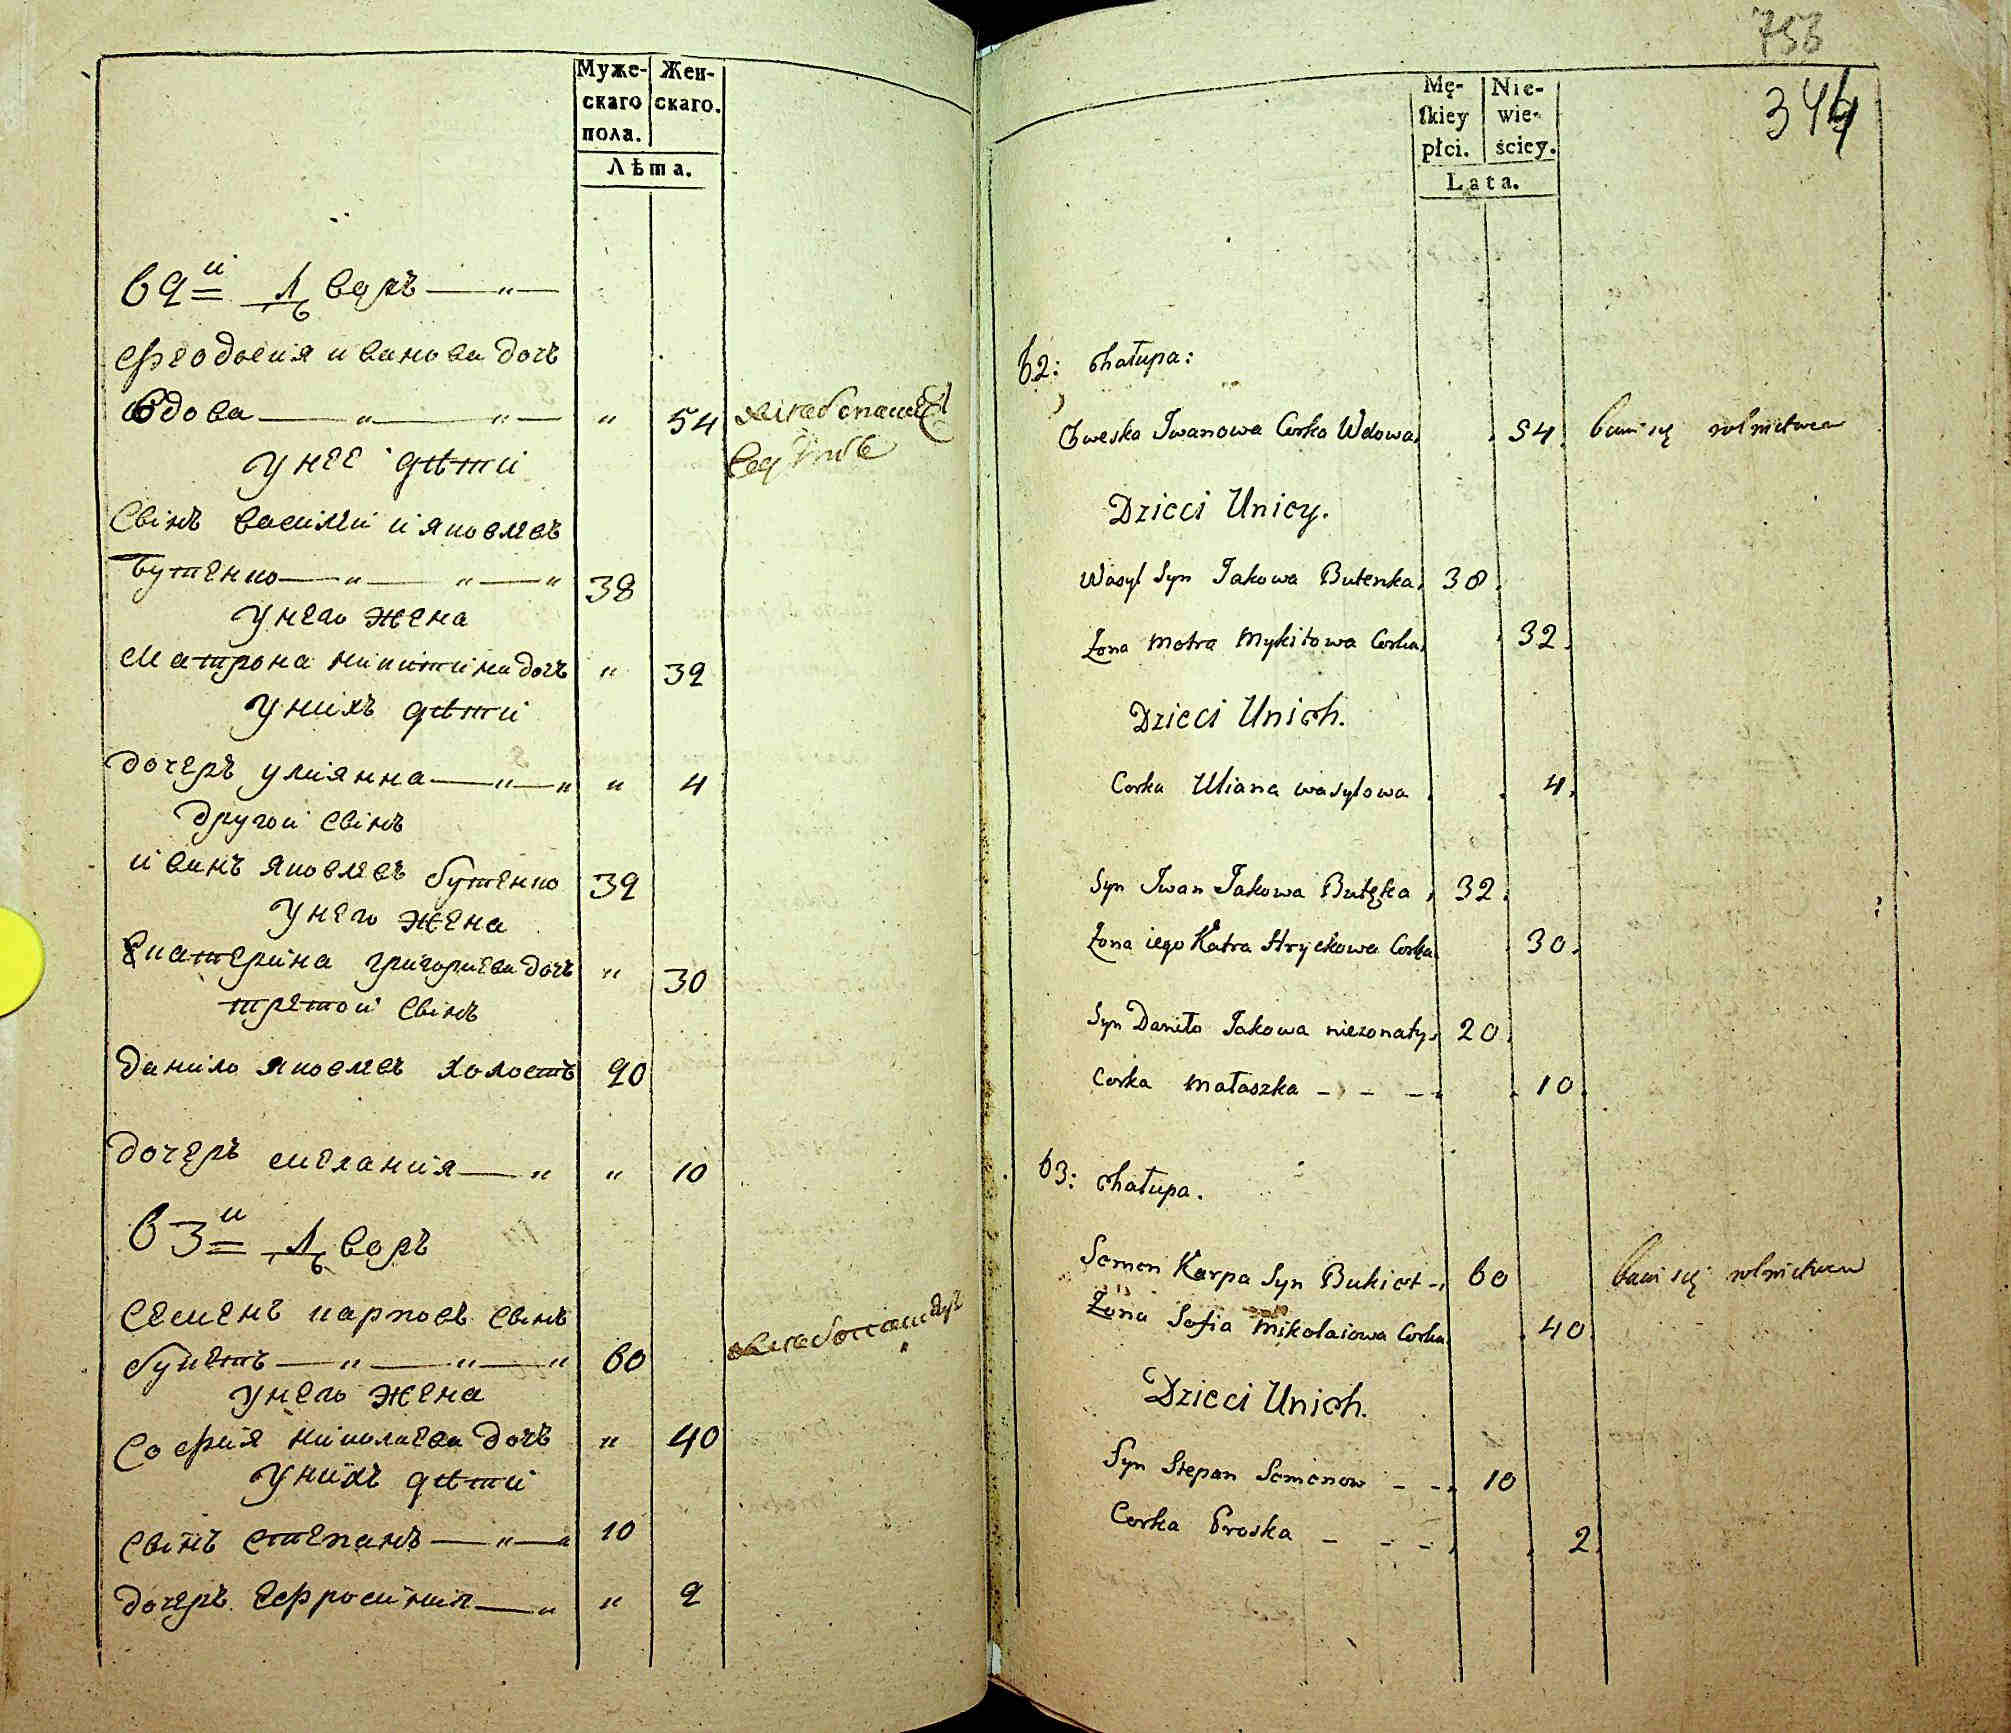 Муже-
скаго
пола.
Жен-
скаго.
Лѣта.
62й Дворъ
Ѳеодосия иванова дочь
вдова " 54 хлебопашествуетъ
У нее дѣти
Свінъ василий ияковлевъ
Бутенко 38
У него жена
Матрона никитина дочъ " 32
У нихъ дѣти
дочеръ улиянна " 4
другой свінъ
иванъ яковлевъ бутенко 32
У него жена
Екатерина григориева дочъ " 30
третой свінъ
данило яковлевъ холостъ 20
дочеръ мелания " 10
63й Дворъ
Семенъ карповъ свінъ
букетъ 60
У него жена
София николаева дочъ " 40
У нихъ дѣти
свінъ степанъ 10
дочеръ Ефросиния " 2
753
344
Mę-
skiey
płci.
Nie-
wie-
ściey.
Lata.
62: Chałupa:
Chweska Iwanowa Corka Wdowa 54 bawi się rolnictwem
Dzieci Uniey.
Wasyl Syn Jakowa Butenka 38
Żona Motra Mykitowa Corka 32
Dzieci Unich.
Corka Uliana wasylowa 4
Syn Iwan Jakowa Butęka 32
Żona iego Katra Hryckowa Corka 30
Syn Daniło Jakowa nieżonaty 20
Corka Małaszka - - - 10
63: Chałupa.
Semen Karpa Syn Bukiet - 60 bawi się rolnictwem
Żona Sofia Mikołaiowa Corka 40
Dzieci Unich.
Syn Stepan Semenow - - 10
Corka Proska - - - 2